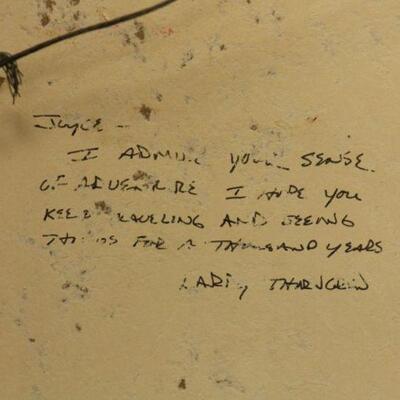 Joyce -
I ADMIRE YOUR SENSE
OF ADVENTURE I HOPE YOU
KEEP TRAVELING AND SEEING
THINGS FOR A THOUSAND YEARS
LARRY